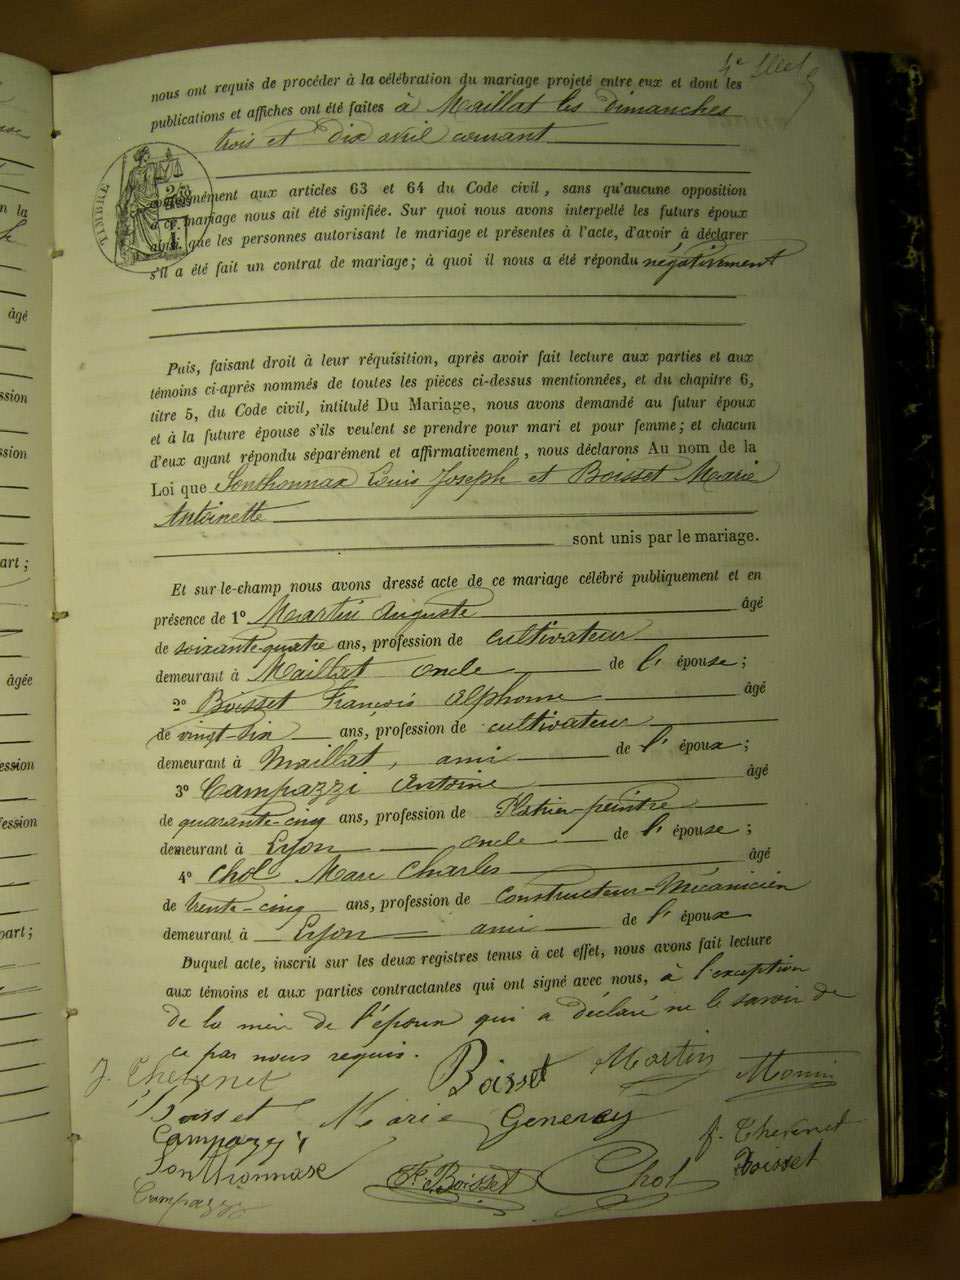 4e
nous ont requis de procéder à la célébration du mariage projeté entre eux et dont les
publications et affiches ont été faites à Maillat les Dimanches
trois et Dix avril courant
TIMBRE
conformément aux articles 63 et 64 du Code civil, sans qu'aucune opposition
à ce mariage nous ait été signifiée. Sur quoi nous avons interpellé les futurs époux
ainsi que les personnes autorisant le mariage et présentes à l'acte, d'avoir à déclarer
s'il a été fait un contrat de mariage; à quoi il nous a été répondu négativement
Puis, faisant droit à leur réquisition, après avoir fait lecture aux parties et aux
témoins ci-après nommés de toutes les pièces ci-dessus mentionnées, et du chapitre 6,
titre 5, du Code civil, intitulé Du Mariage, nous avons demandé au futur époux
et à la future épouse s'ils veulent se prendre pour mari et pour femme; et chacun
d'eux ayant répondu séparément et affirmativement, nous déclarons Au nom de la
Loi que Sonthonnax Louis Joseph et Boisset Marie
Antoinette
sont unis par le mariage.
Et sur-le-champ nous avons dressé acte de ce mariage célébré publiquement et en
présence de 1° Martin Auguste âgé
de soixante-quatre ans, profession de cultivateur
demeurant à Maillat oncle de l'épouse;
2° Boisset François Alphonse âgé
de vingt-six ans, profession de cultivateur
demeurant à Maillat, ami de l'époux;
3° Campazzi Antoine âgé
de quarante-cinq ans, profession de Plâtrier-peintre
demeurant à Lyon oncle de l'épouse;
4° Chol Marc Charles âgé
de trente-cinq ans, profession de Constructeur-Mécanicien
demeurant à Lyon ami de l'époux
Duquel acte, inscrit sur les deux registres tenus à cet effet, nous avons fait lecture
aux témoins et aux parties contractantes qui ont signé avec nous, à l'exception
de la mère de l'époux qui a déclaré ne le savoir de
ce par nous requis.
J. Chevenet Boisset Martin Monin
Boisset Marie Generey
Campazzi f. Chevenet
Sonthonnax Fs Boisset Chol Boisset
Campazzi